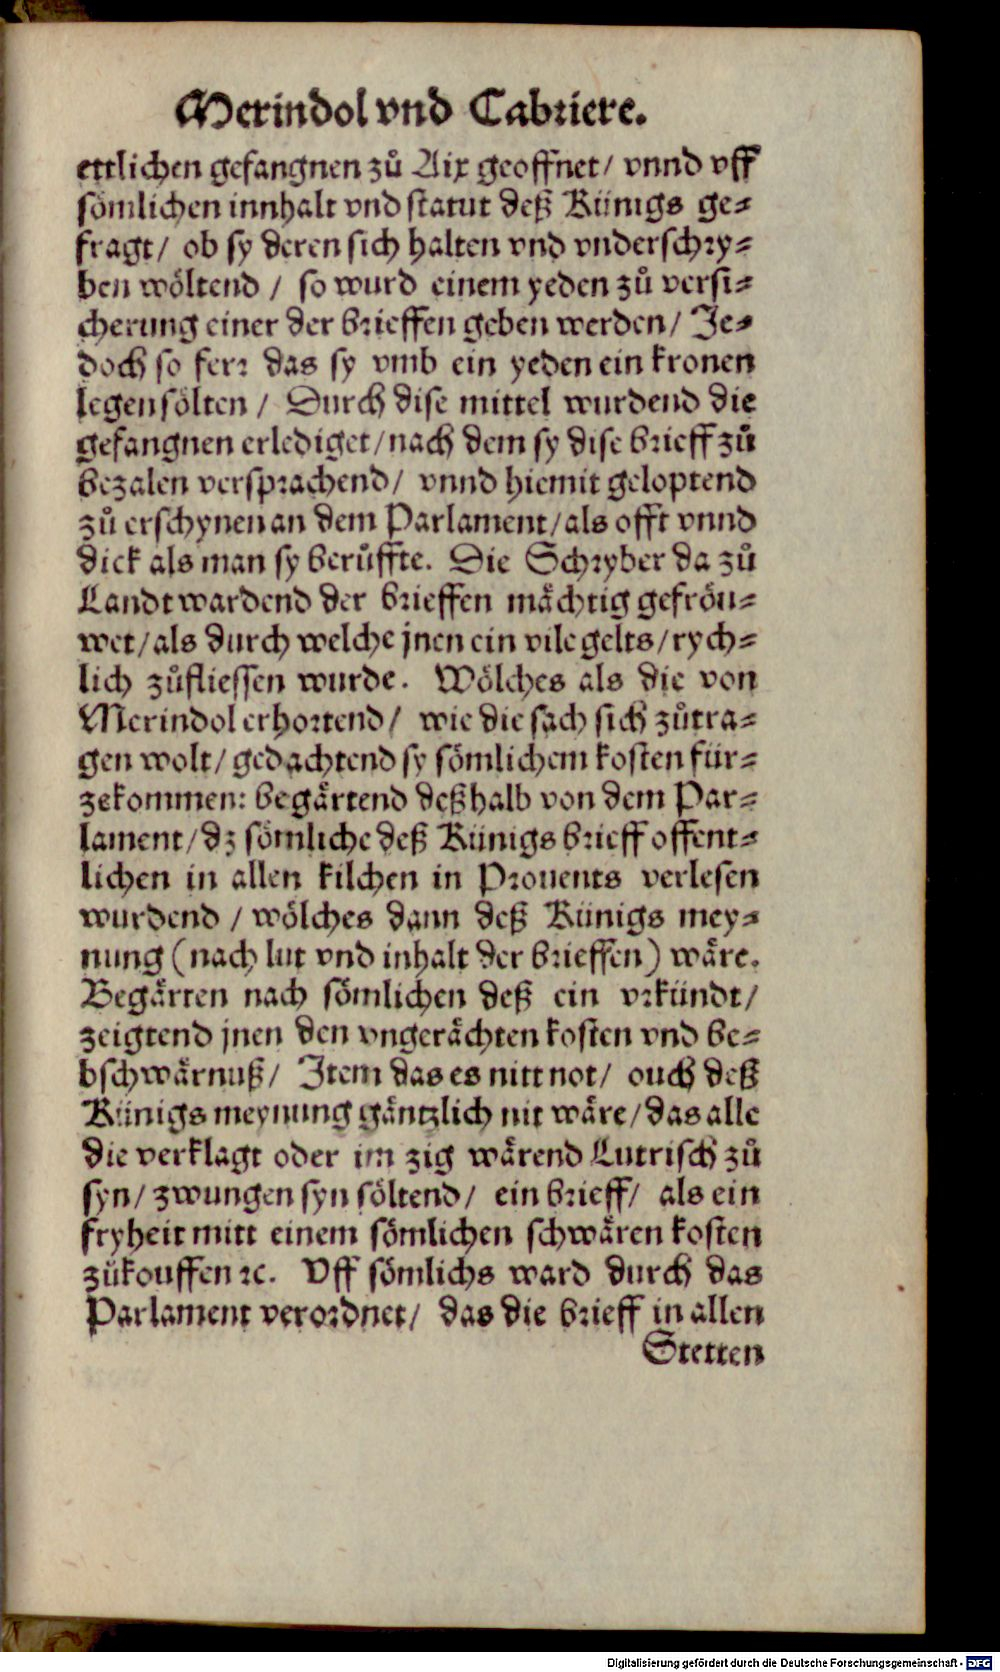 Merindol vnd Cabriere.
ettlichen gefangnen zů Aix geoffnet/ vnnd vff
sömlichen innhalt vnd statut deß Künigs ge⸗
fragt/ ob sy deren sich halten vnd vnderschry⸗
ben wöltend / so wurd einem yeden zů versi⸗
cherung einer der brieffen geben werden/ Je⸗
doch so ferr das sy vmb ein yeden ein kronen
legen sölten / Durch dise mittel wurdend die
gefangnen erlediget/nach dem sy dise brieff zů
bezalen versprachend/ vnnd hiemit geloptend
zů erschynen an dem Parlament/als offt vnnd
dick als man sy berůffte. Die Schryber da zů
Landt wardend der brieffen mächtig gefröu⸗
wet/als durch welche jnen ein vile gelts/rych⸗
lich zůfliessen wurde. Wölches als die von
Merindol erhortend/ wie die sach sich zůtra⸗
gen wolt/gedachtend sy sömlichem kosten für⸗
zekommen: begärtend deßhalb von dem Par⸗
lament/dz sömliche deß Künigs brieff offent⸗
lichen in allen kilchen in Prouents verlesen
wurdend / wölches dann deß Künigs mey⸗
nung (nach lut vnd inhalt der brieffen) wäre.
Begärten nach sömlichen deß ein vrkündt/
zeigtend jnen den vngerächten kosten vnd be⸗
bschwärnuß/ Item das es nitt not/ ouch deß
Künigs meynung gäntzlich nit wäre/das alle
die verklagt oder im zig wärend Lutrisch zů
syn/ zwungen syn söltend/ ein brieff/ als ein
fryheit mitt einem sömlichen schwären kosten
zůkouffen ꝛc. Vff sömlichs ward durch das
Parlament verordnet/ das die brieff in allen
Stetten
Digitalisierung gefördert durch die Deutsche Forschungsgemeinschaft - DFG